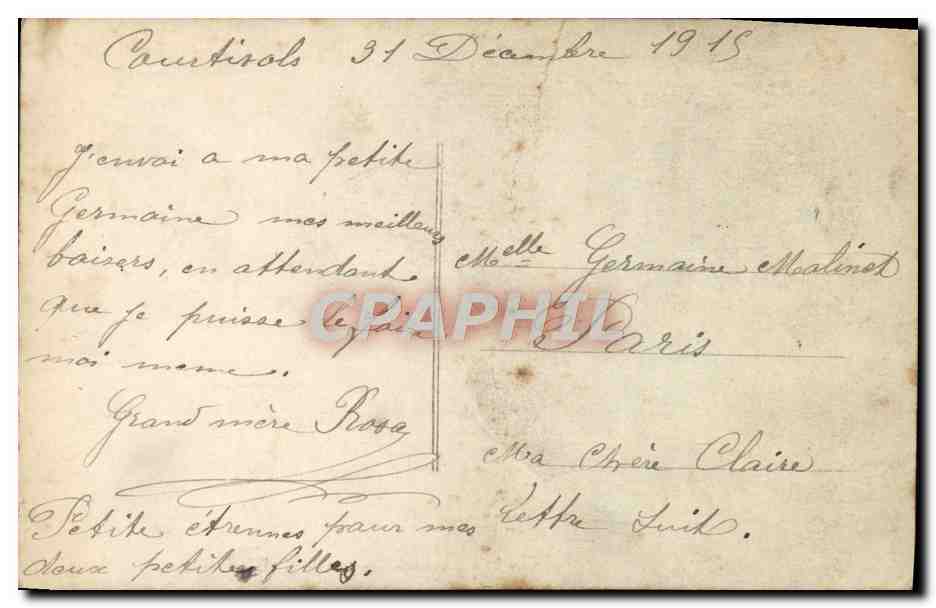 Courtisols 31 Décembre 1915
J'envoi a ma petite
Germaine mes meilleurs
baisers, en attendant
que je puisse le faire
moi meme.
Grand mère Rosa
Petite étrennes pour mes
deux petites filles.
Melle Germaine Malinet
Paris
Ma Chère Claire
lettre suit.
CPAPHIL